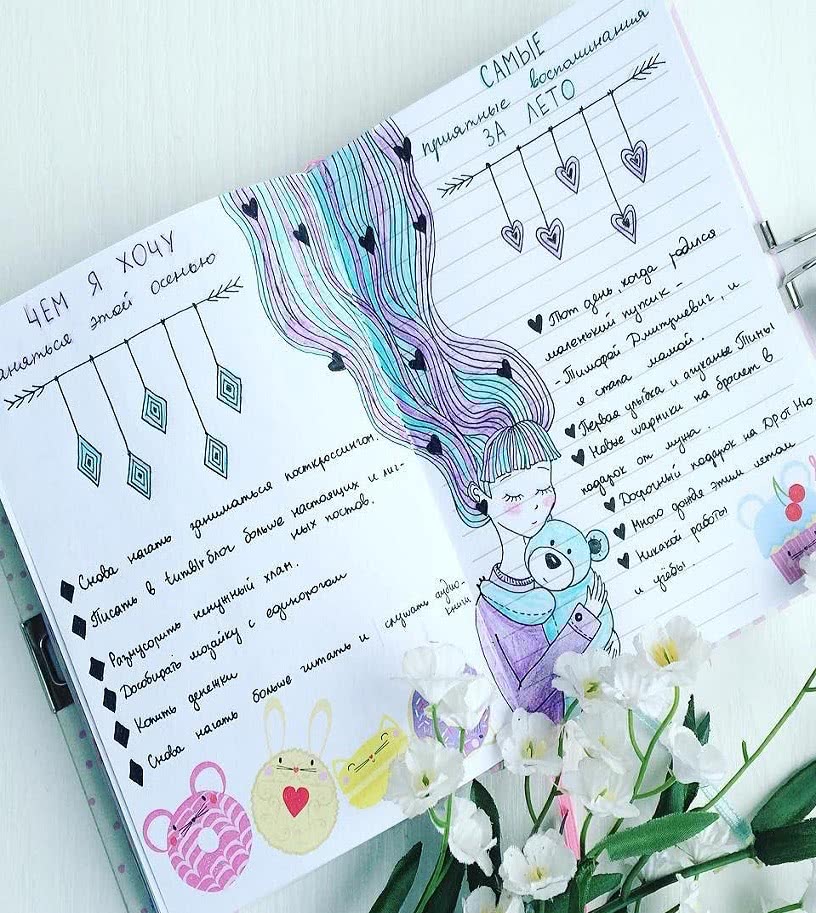 ЧЕМ Я ХОЧУ
заняться этой осенью
Снова начать заниматься посткроссингом.
Писать в tumblr блог больше настоящих и лич-
ных постов.
Размусорить ненужный хлам.
Дособирать мозайку с единорогом
Копить денежки
Снова начать больше читать и слушать аудио-
книги
САМЫЕ
приятные воспоминания
ЗА ЛЕТО
Тот день, когда родился
маленький пупсик -
- Тимофей Дмитриевич, и
я стала мамой.
Первая улыбка и агуканье Тимы
Новые шарники на браслет в
подарок от мужа.
подарок на
Много дождя этим летом
Никакой работы
и учёбы.